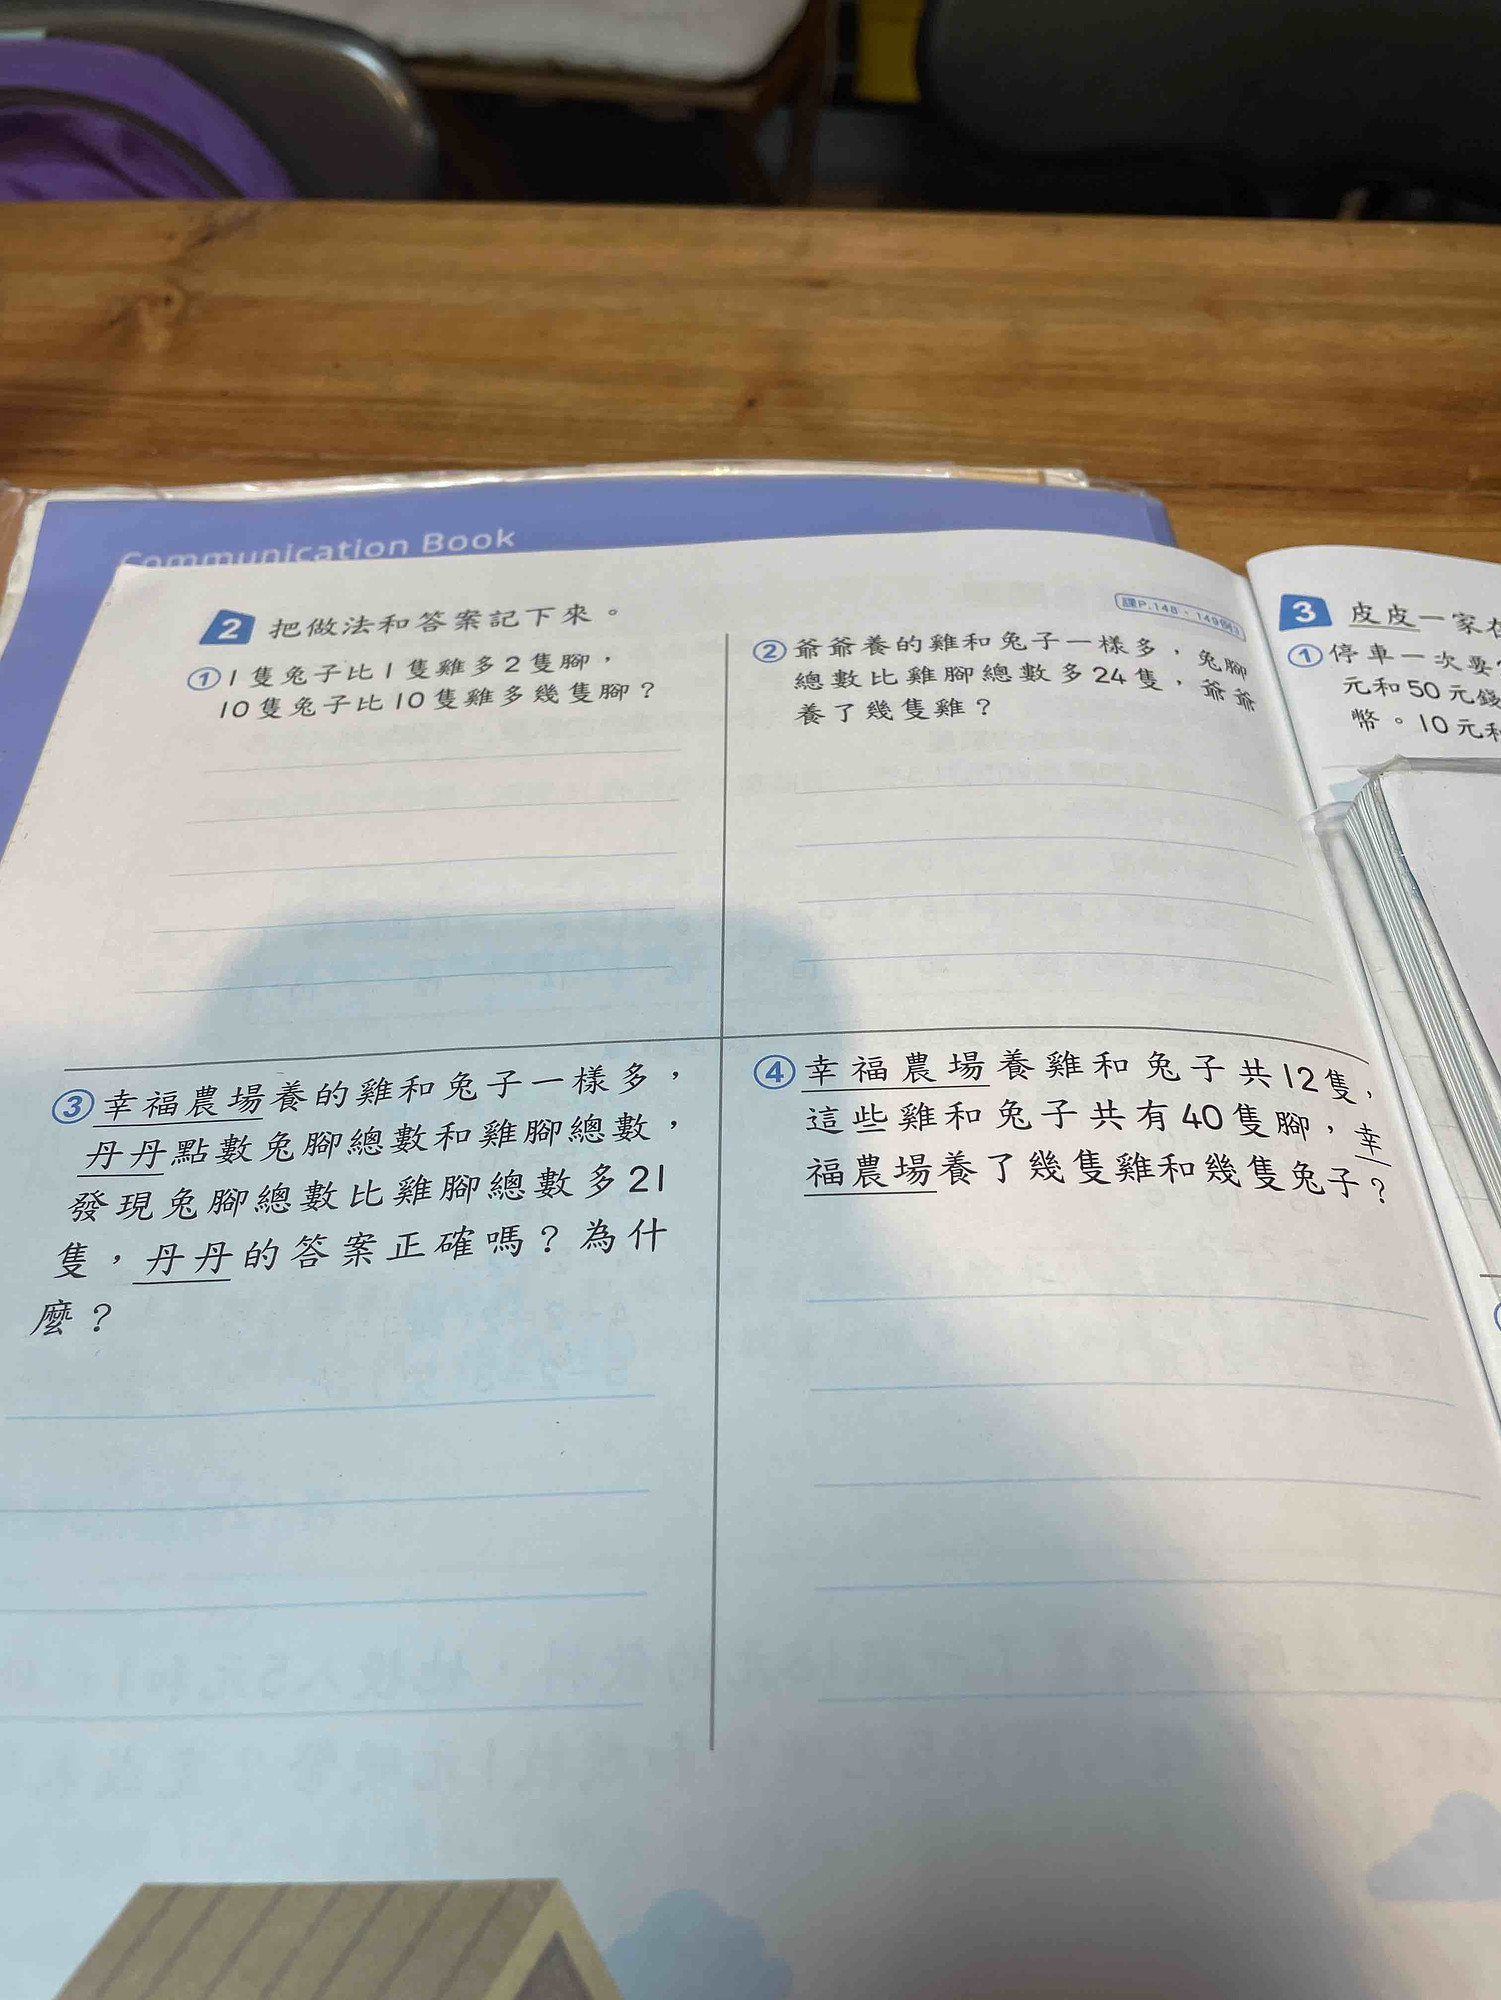 Communication Book
2 把做法和答案記下來。
課P.148、149
①1隻兔子比1隻雞多2隻腳，
10隻兔子比10隻雞多幾隻腳？
②爺爺養的雞和兔子一樣多，兔腳
總數比雞腳總數多24隻，爺爺
養了幾隻雞？
③幸福農場養的雞和兔子一樣多，
丹丹點數兔腳總數和雞腳總數，
發現兔腳總數比雞腳總數多21
隻，丹丹的答案正確嗎？為什
麼？
④幸福農場養雞和兔子共12隻，
這些雞和兔子共有40隻腳，幸
福農場養了幾隻雞和幾隻兔子？
3 皮皮一家
①停車一次要
元和50元錢
幣。10元和